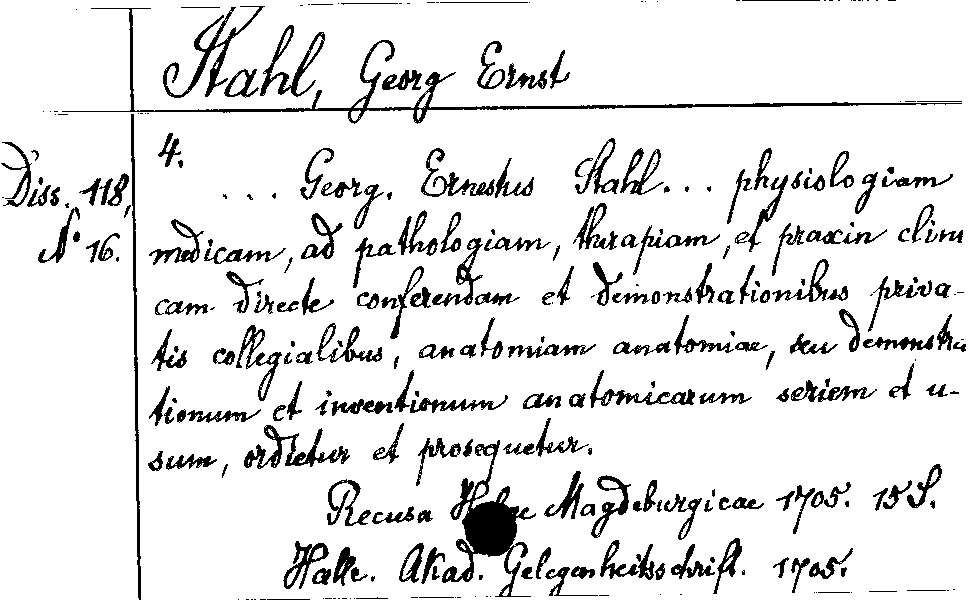 Stahl, Georg Ernst
4.
Diss. 118,
N° 16.
... Georg. Ernestus Stahl... physiologiam
medicam, ad pathologiam, therapiam, et praxin clini
cam directe conferendam et demonstrationibus priva-
tis collegialibus, anatomiam anatomiae, seu demonstra
tionum et inventionum anatomicarum seriem et u-
sum, ordietur et prosequetur.
Recusa Halae Magdeburgicae 1705. 15 S.
Halle. Akad. Gelegenheitsschrift. 1705.